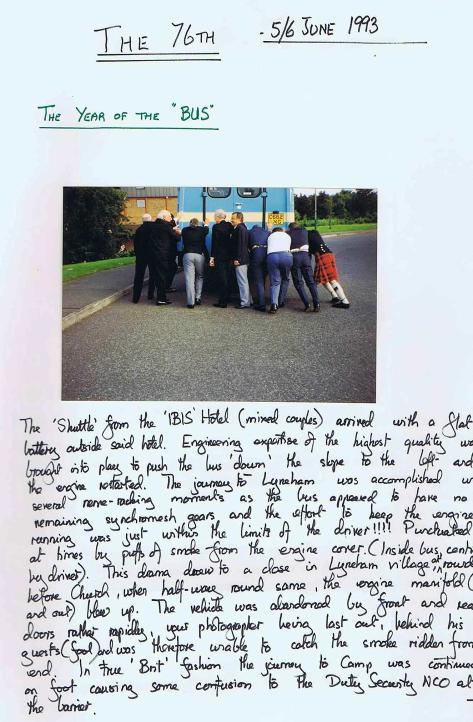 THE 76TH - 5/6 JUNE 1993
THE YEAR OF THE "BUS"
The 'Shuttle' from the 'IBIS' Hotel (mixed couples) arrived with a flat
battery outside said hotel. Engineering expertise of the highest quality
brought into play to push the bus 'down' the slope to the left and
the engine restarted. The journey to Lyneham was accomplished
several nerve-racking moments as the bus appeared to have no
remaining synchromesh gears and the effort to keep the engine
running was just within the limits of the driver!!!! Punctuated
at times by puffs of smoke from the engine cover. (Inside bus,
by driver). This drama drew to a close in Lyneham village
before Church, when half-way round same, the engine manifold (
and out) blew up. The vehicle was abandoned by front and
doors rather rapidly, your photographer being last out, behind his
guests (fool) and was therefore unable to catch the smoke ridden
end. In true 'Brit' fashion the journey to Camp was
on foot causing some confusion to the Duty Security NCO
the barrier.